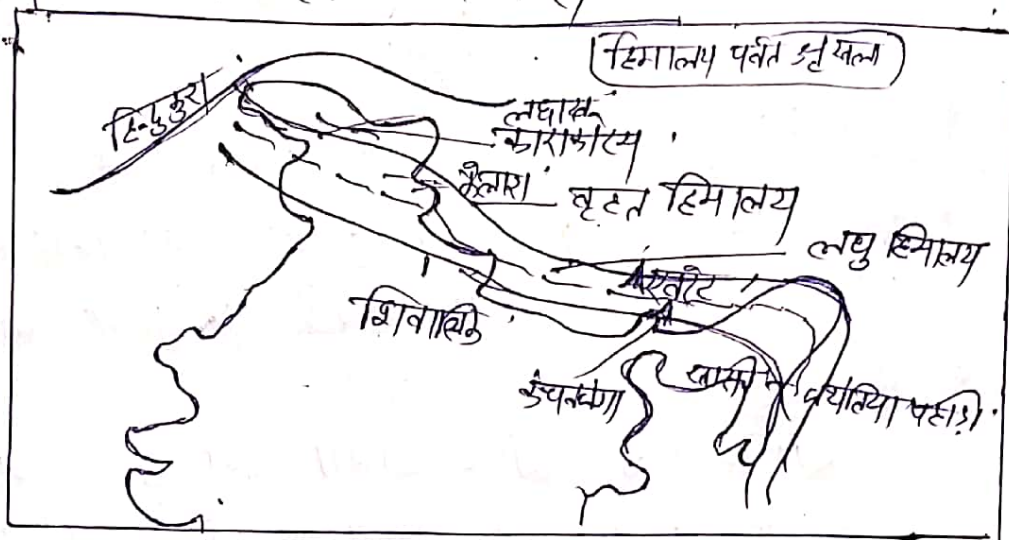 हिमालय पर्वत श्रृंखला
हिन्दुकुश
लद्दाख
काराकोरम
कैलाश
वृहत हिमालय
लघु हिमालय
एवरेट
शिवालिक
कंचनजंगा
खासी
जयंतिया पहाड़ी